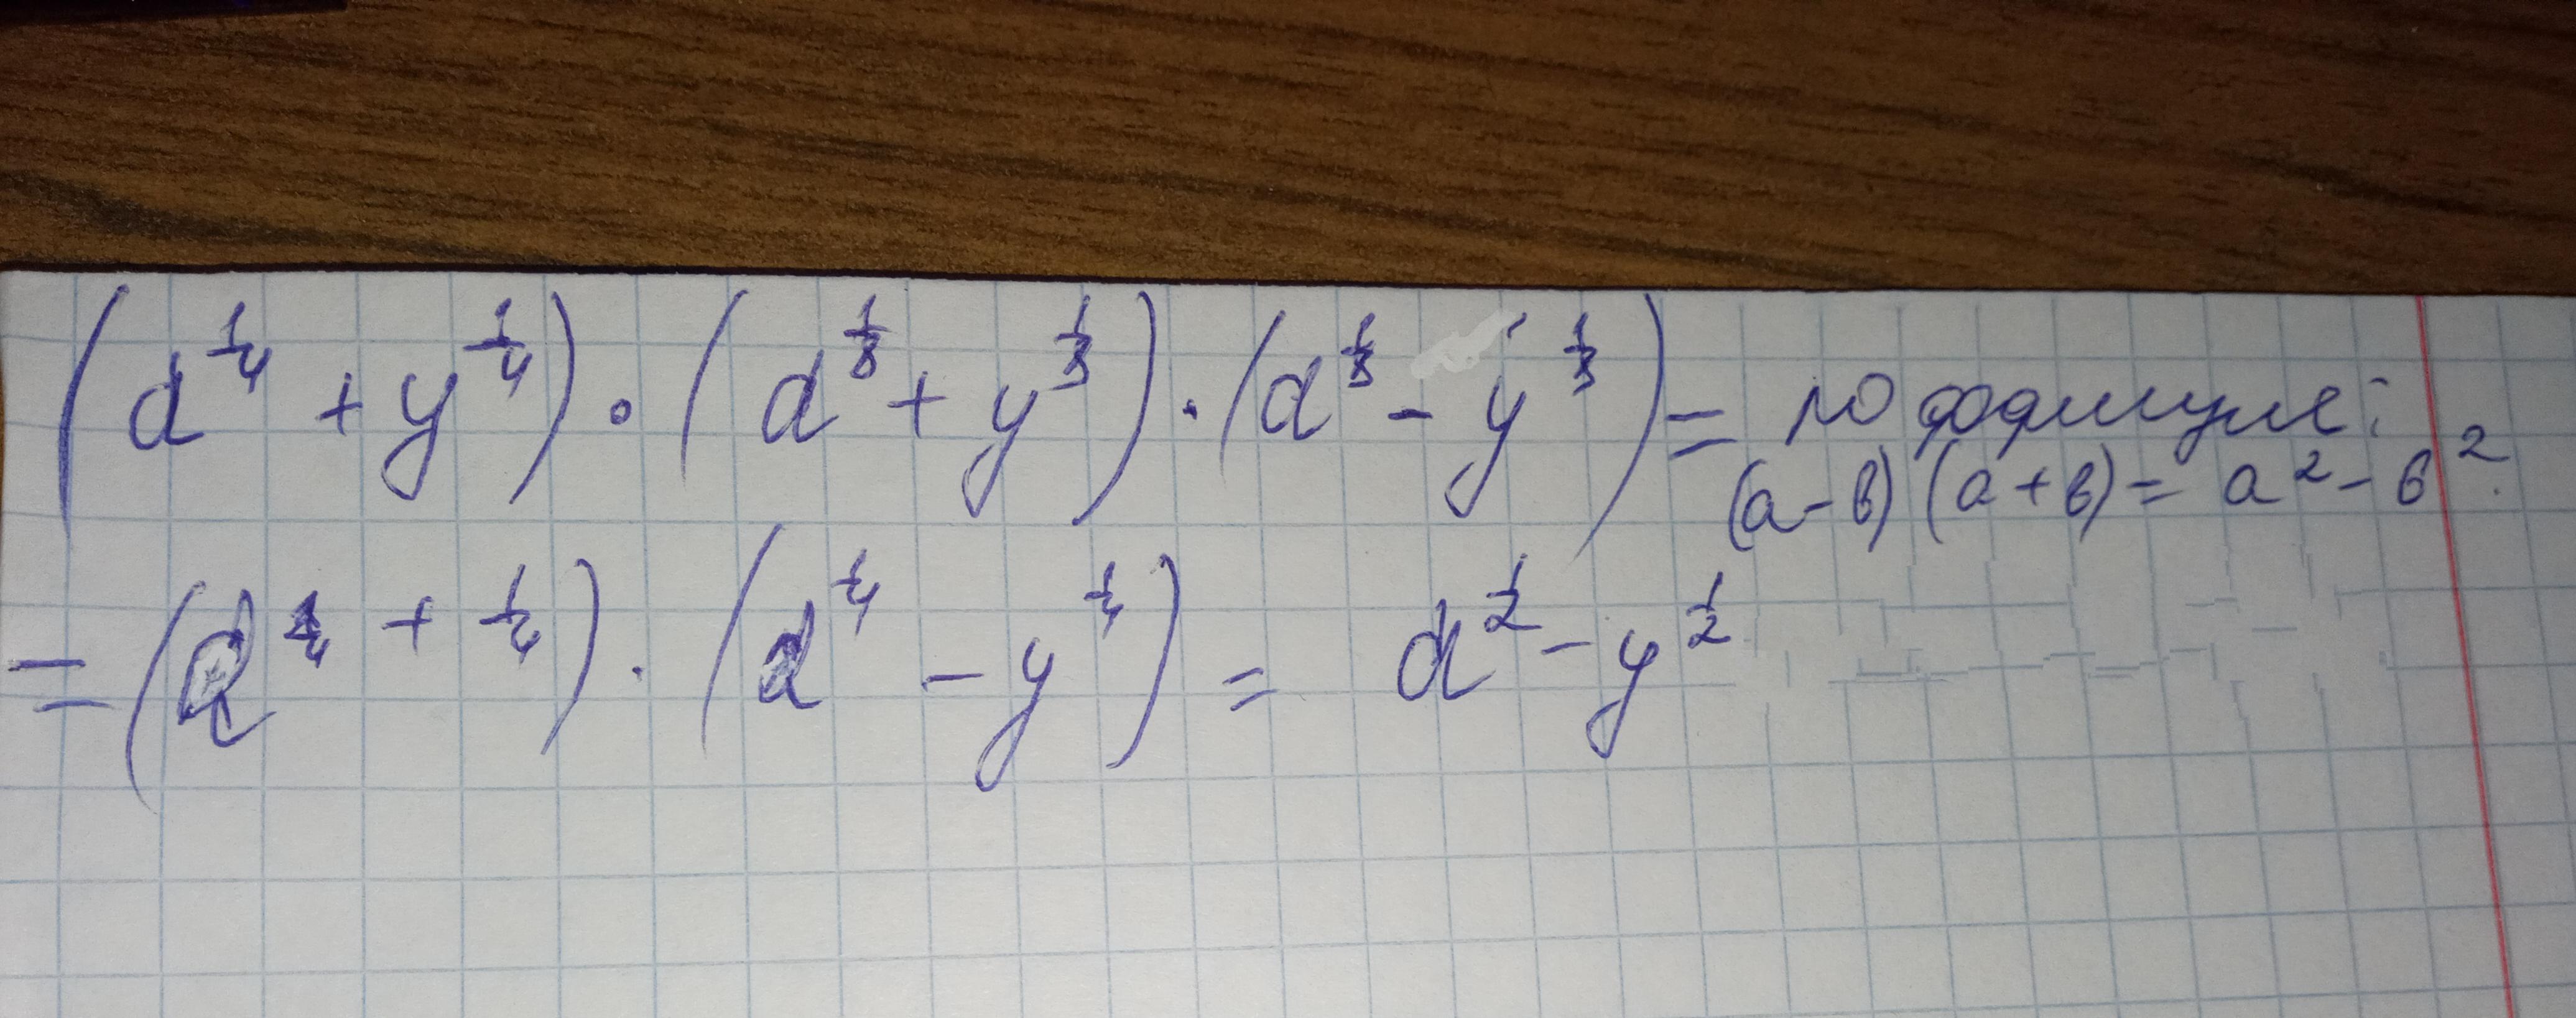 (d^{1/4} + y^{1/4}) · (d^{1/8} + y^{1/8}) · (d^{1/8} - y^{1/8}) = по формуле:
(a-b)(a+b) = a² - b².
= (d^{1/4} + ^{1/4}) · (d^{1/4} - y^{1/4}) = d^{1/2} - y^{1/2}